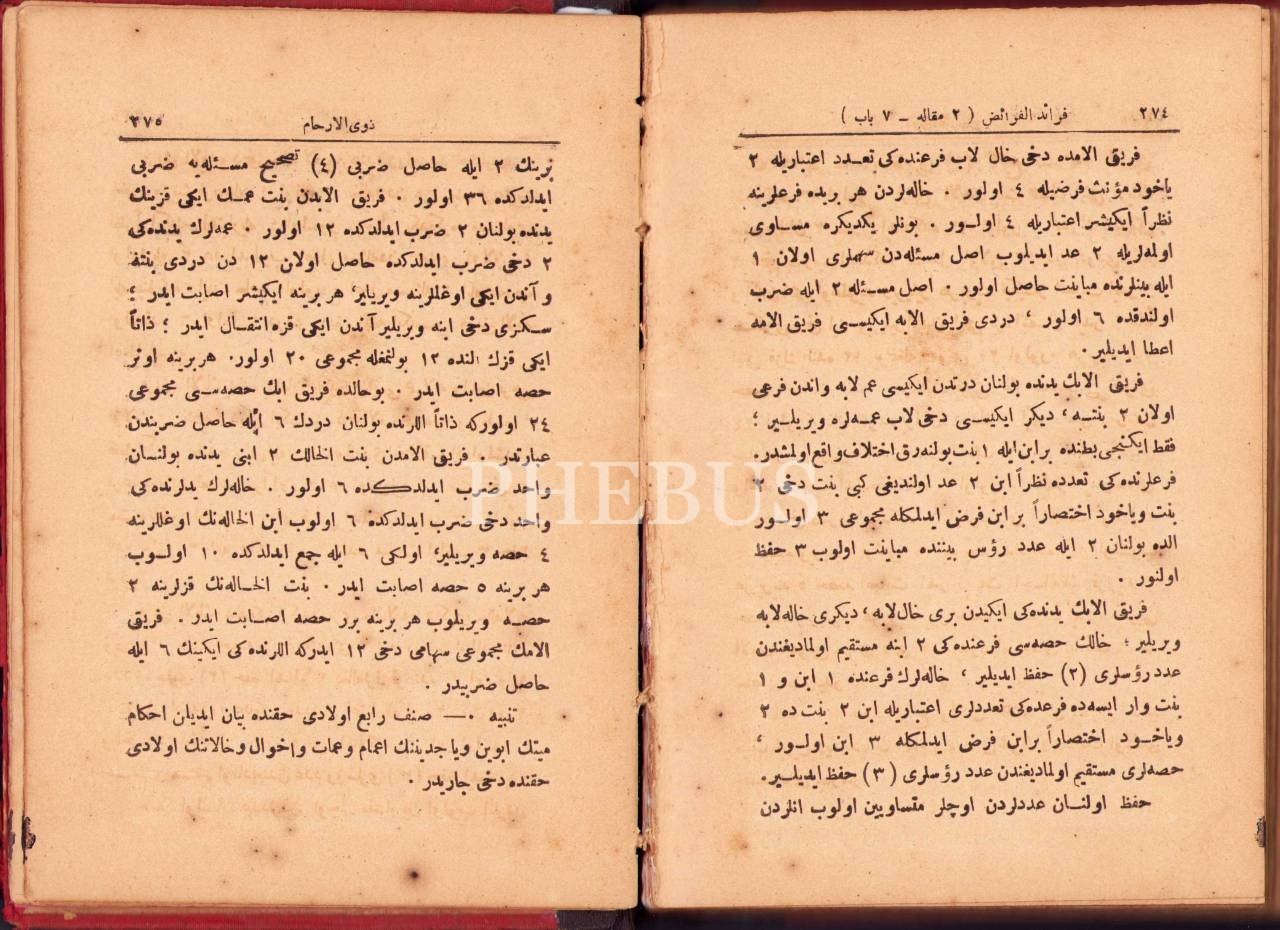 ٢٧٤ فرائد الفرائض ( ٢ مقاله ــ ٧ باب )
فریق الامده دخی خال لاب فرعنده‌کی تعـدد اعتباریله ٢
یاخود مؤنث فرضیله ٤ اولور . خاله‌لردن هر بریده فرعلرینه
نظراً ایکیشر اعتباریله ٤ اولـور . بونلر یکدیکره مسـاوی
اولمه‌لریله ٢ عد ایدیلوب اصل مسئله‌دن سهملری اولان ١
ایله بینلرنده مباینت حاصل اولور . اصل مسـئله ٢ ایله ضرب
اولندقده ٦ اولور ، دردی فریق الابه ایکیسی فریق الامه
اعطا ایدیلیر .
فریق الابك یدنده بولنان درتدن ایکیسی عم لابه واندن فرعی
اولان ٢ بنتـه ، دیکر ایکیسی دخی لاب عمـه‌لره ویریلـیر ؛
فقط ایکنجی بطنده برابن ایله ١ بنت بولنه‌رق اختلاف واقع اولمشدر.
فرعلرنده‌کی تعدده نظراً ابن ٢ عد اولندیغی کبی بنت دخی ٢
بنت ویاخود اختصاراً بر ابن فرض ایدلمکله مجموعی ٣ اولـور
الده بولنان ٢ ایله عدد رؤس بیننده مباینت اولوب ٣ حفظ
اولنور .
فریق الابك یدنده‌کی ایکیدن بری خال لابه ، دیکری خاله لابه
ویریلیر ؛ خالك حصه‌سی فرعنده‌کی ٢ ابنه مستقیم اولمادیغندن
عدد رؤسلری (٢) حفظ ایدیلیر ، خاله‌لرك فرعنده ١ ابن و ١
بنت وار ایسه‌ده فرعده‌کی تعددلری اعتباریله ابن ٢ بنت ده ٢
ویاخـود اختصاراً برابن فرض ایدلمکله ٣ ابن اولـور ،
حصه‌لری مستقیم اولمادیغندن عدد رؤسلری ( ٣ ) حفظ ایدیلـیر.
حفظ اولنـان عددلردن اوچلر متساویین اولوب انلردن
ذوی الارحام ٢٧٥
برینك ٢ ایله حاصل ضربی (٤) تصحیح مسـئله‌یه ضربی
ایدلدکده ٣٦ اولور . فریق الابدن بنت عمـك ایکی قزینك
یدنده بولنان ٢ ضرب ایدلدکده ١٢ اولور . عمه‌لرك یدنده‌کی
٢ دخی ضرب ایدلدکده حاصل اولان ١٢ دن دردی بنته
و آندن ایکی اوغللرینه ویریلیر، هر برینه ایکیشر اصابت ایدر ؛
سـکزی دخی ابنه ویریلیر آندن ایکی قزه انتقـال ایدر ؛ ذاتاً
ایکی قزك النده ١٢ بولنمغله مجموعی ٢٠ اولور. هربرینه اونر
حصه اصابت ایدر . بوحالده فریق ابك حصه‌سـی مجموعی
٢٤ اولورکه ذاتاً اللرنده بولنان دردك ٦ ایله حاصل ضربندن
عبارتدر . فریق الامدن بنت الخالك ٢ ابنی یدنده بولنـان
واحد ضرب ایدلدکده ٦ اولور . خاله‌لرك یدلرنده‌کی
واحد دخی ضرب ایدلدکده ٦ اولوب ابن الخاله‌نك اوغللرینه
٤ حصه ویریلیر، اولکی ٦ ایله جمع ایدلدکده ١٠ اولـوب
هر برینه ٥ حصه اصابت ایدر . بنت الخـاله‌نك قزلرینه ٢
حصـه ویریلوب هر برینه برر حصه اصـابت ایدر . فریق
الامك مجموعی سهامی دخی ١٢ ایدرکه اللرنده‌کی ایکینك ٦ ایله
حاصل ضربیدر .
تنبیه .— صنف رابع اولادی حقنده بیان ایدیان احکام
میتك ابوین ویا جدیننك اعمام وعمات واخوال وخالاتنك اولادی
حقنده دخی جاریدر .
PHEBUS